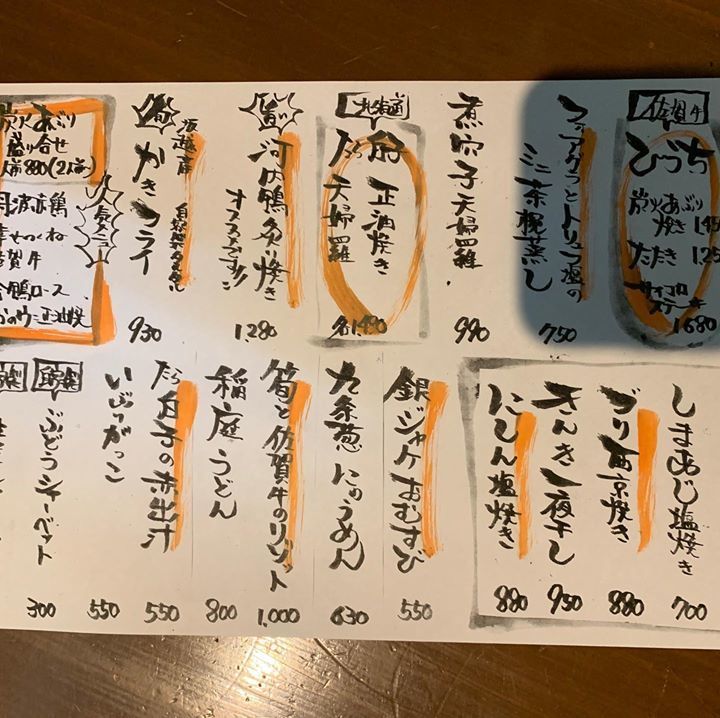 佐賀牛
ひつち
炭火あぶり
焼き
たたき
サイコロ
ステーキ
1680
フォアグラとトリュフ塩の
ミニ茶椀蒸し
750
煮穴子天婦羅
980
北海道
正油焼き
たち
天婦羅
河内鴨炙り焼き
オススメです!!
1,280
坂越産
自家製タルタル
かきフライ
930
炭火あぶり
盛り合せ
880(2人前)
人気メニュー
丹波赤鶏
幸せつくね
佐賀牛
合鴨ロース
正油焼
しまあじ塩焼き
700
ブリ西京焼き
880
きんき一夜干し
950
にしん塩焼き
880
銀ジャケおむすび
550
九条葱にゅうめん
630
筍と佐賀牛のリゾット
1,000
稲庭うどん
800
たち白子の赤出汁
550
いぶりがっこ
550
ぶどうシャーベット
300